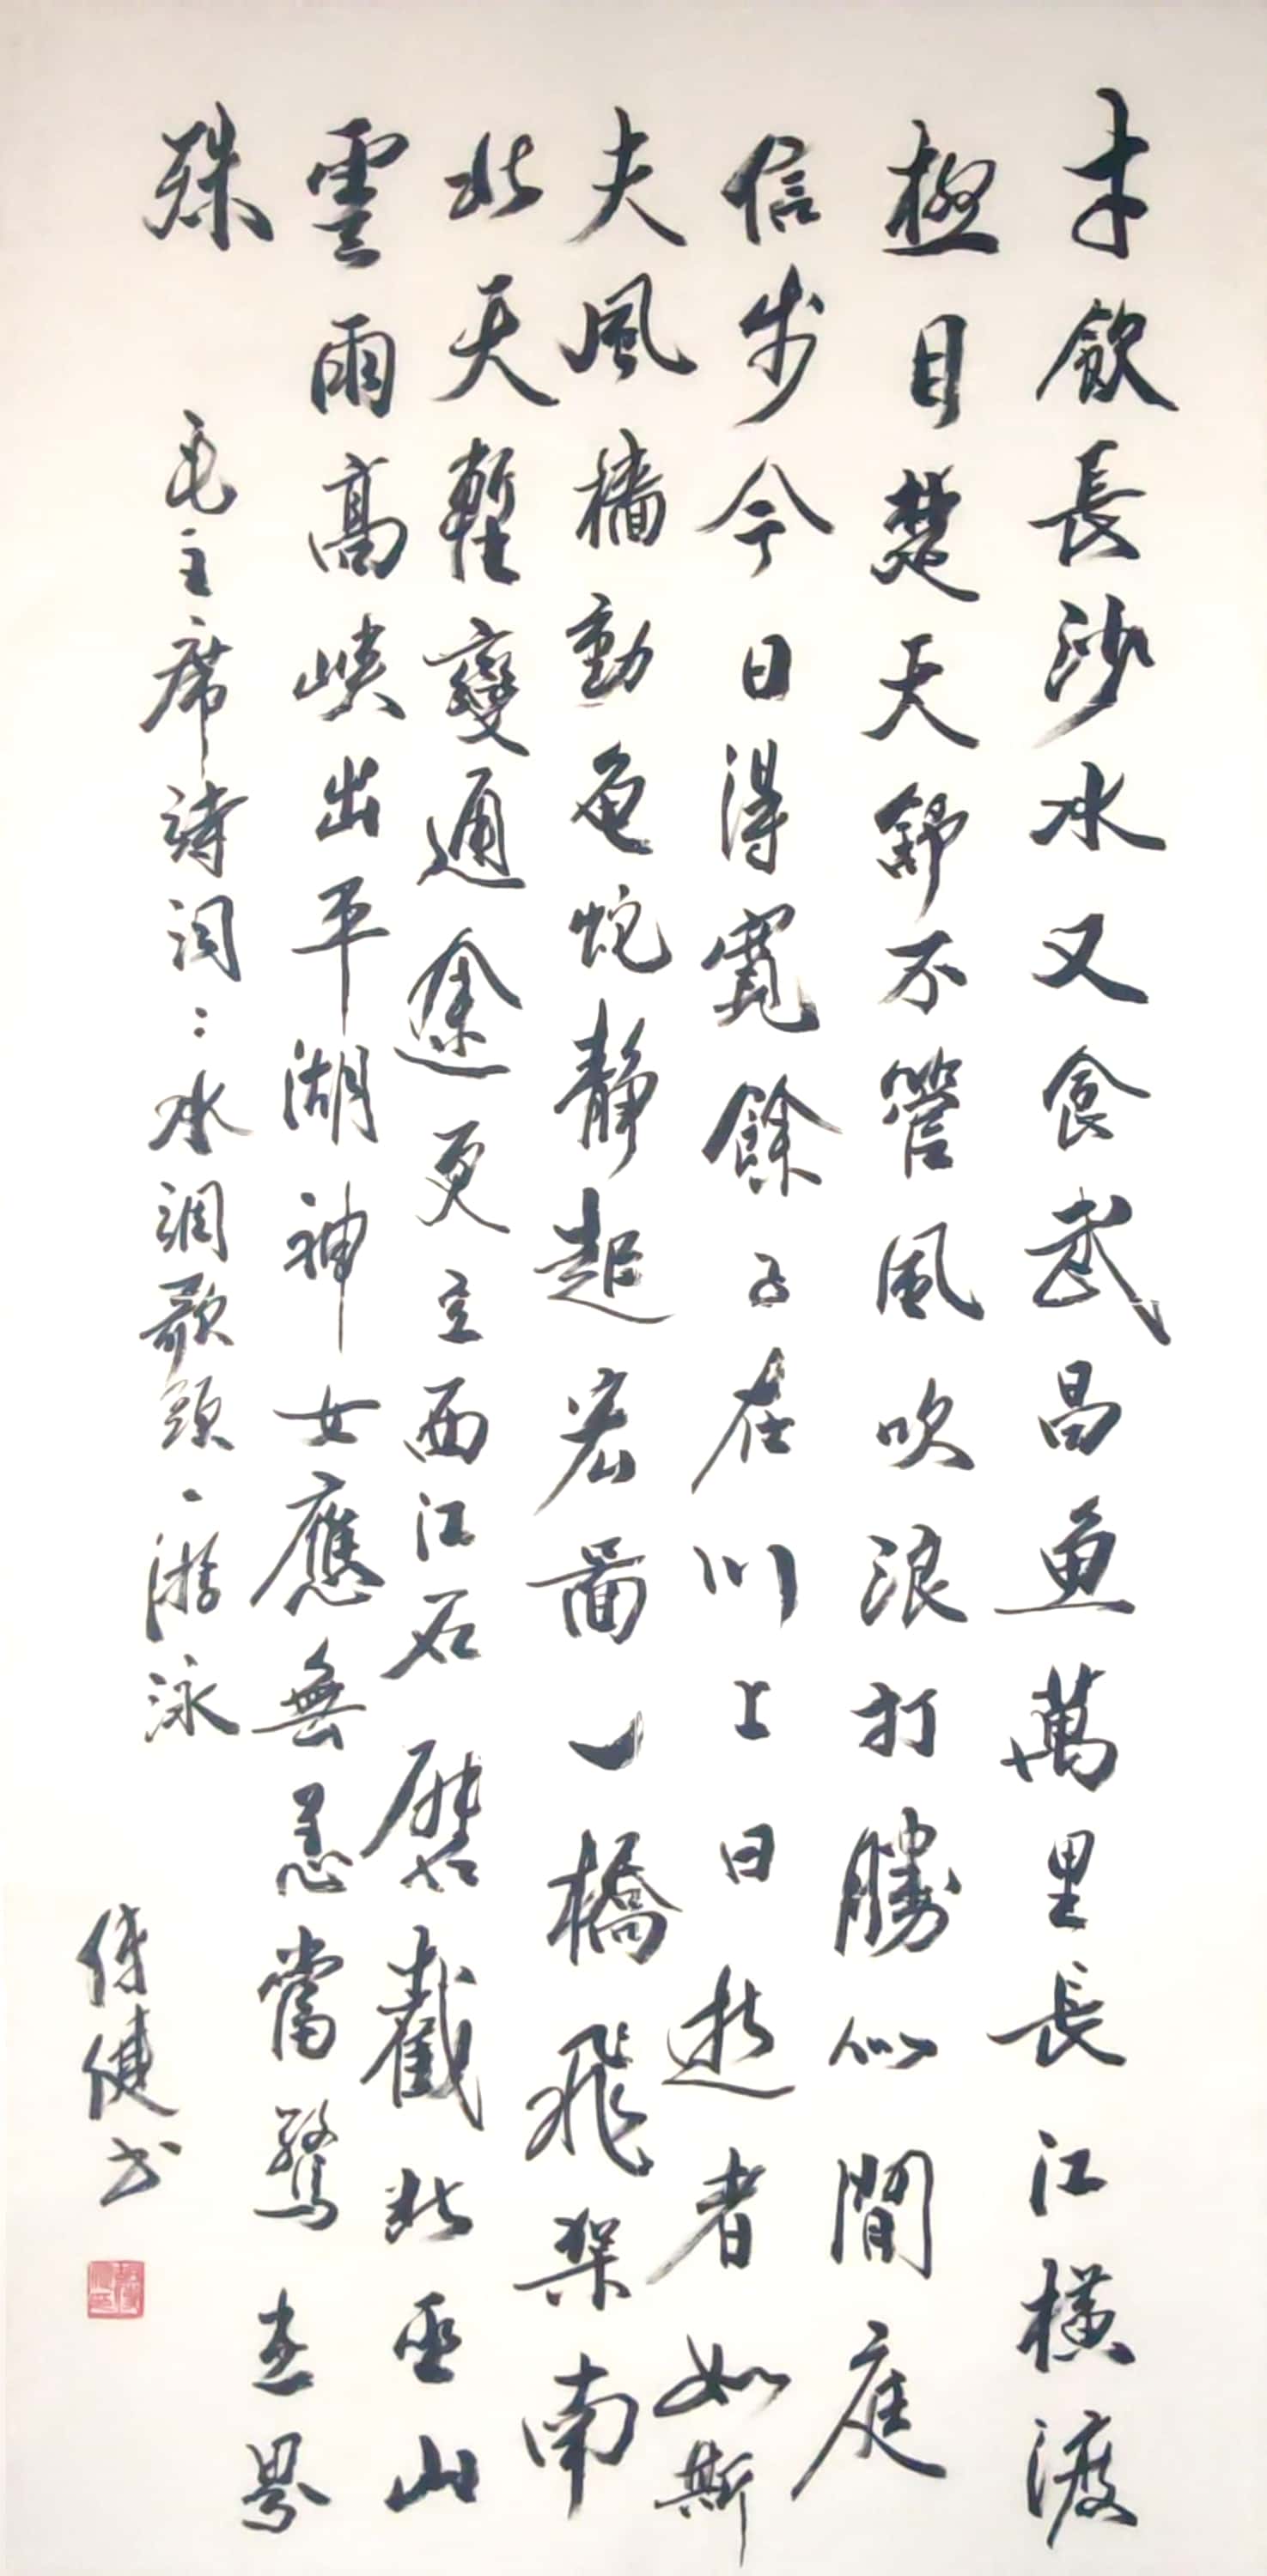 才飲長沙水又食武昌魚萬里長江橫渡
極目楚天舒不管風吹浪打勝似閒庭
信步今日得寬餘子在川上曰逝者如斯
夫風檣動龜蛇靜起宏圖一橋飛架南
北天塹變通途更立西江石壁截斷巫山
雲雨高峽出平湖神女應無恙當驚世界
殊
毛主席詩詞：水調歌頭·游泳
傅健书